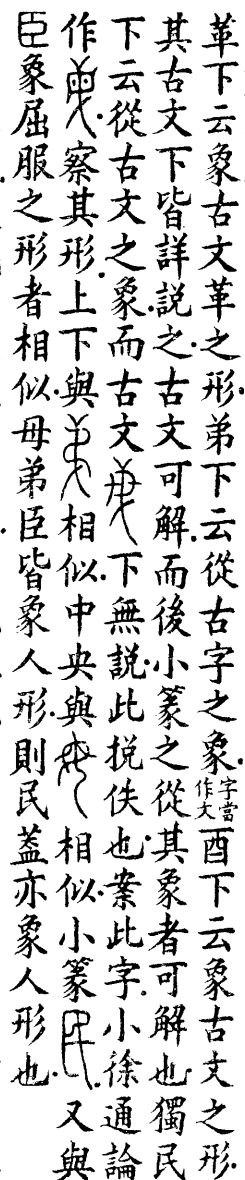 革下云象古文革之形弟下云從古字之象字當作文酉下云象古文之形
其古文下皆詳説之古文可解而後小篆之從其象者可解也獨民
下云從古文之象而古文下無説此挩佚也案此字小徐通論
作察其形上下與相似中央與相似小篆又與
臣象屈服之形者相似母弟臣皆象人形則民葢亦象人形也